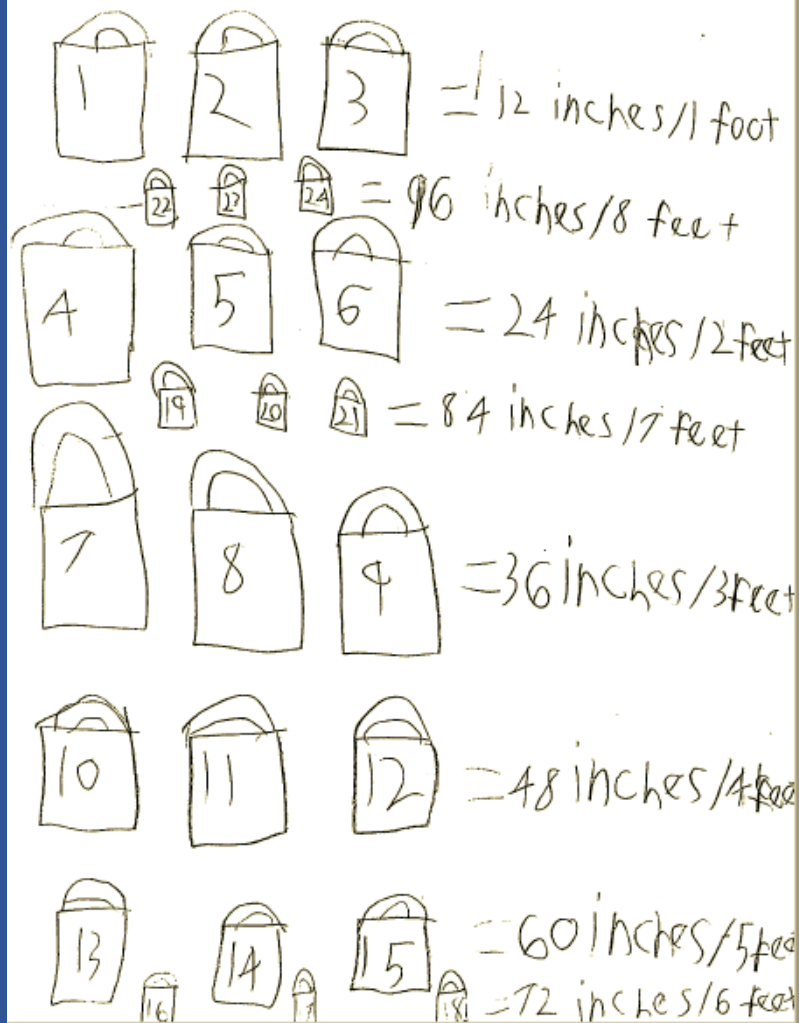 1 2 3 = 12 inches/1 foot
22 23 24 = 96 inches/8 feet
4 5 6 = 24 inches/2 feet
19 20 21 = 84 inches/7 feet
7 8 9 = 36 inches/3 feet
10 11 12 = 48 inches/4
13 14 15 = 60 inches/5
16 18 = 72 inches/6 feet